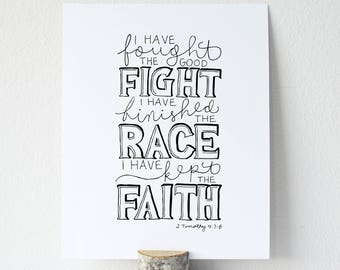 I HAVE
fought
THE GOOD
FIGHT
I HAVE
finished
THE
RACE
I HAVE
kept
THE
FAITH
2 Timothy 4:7-8